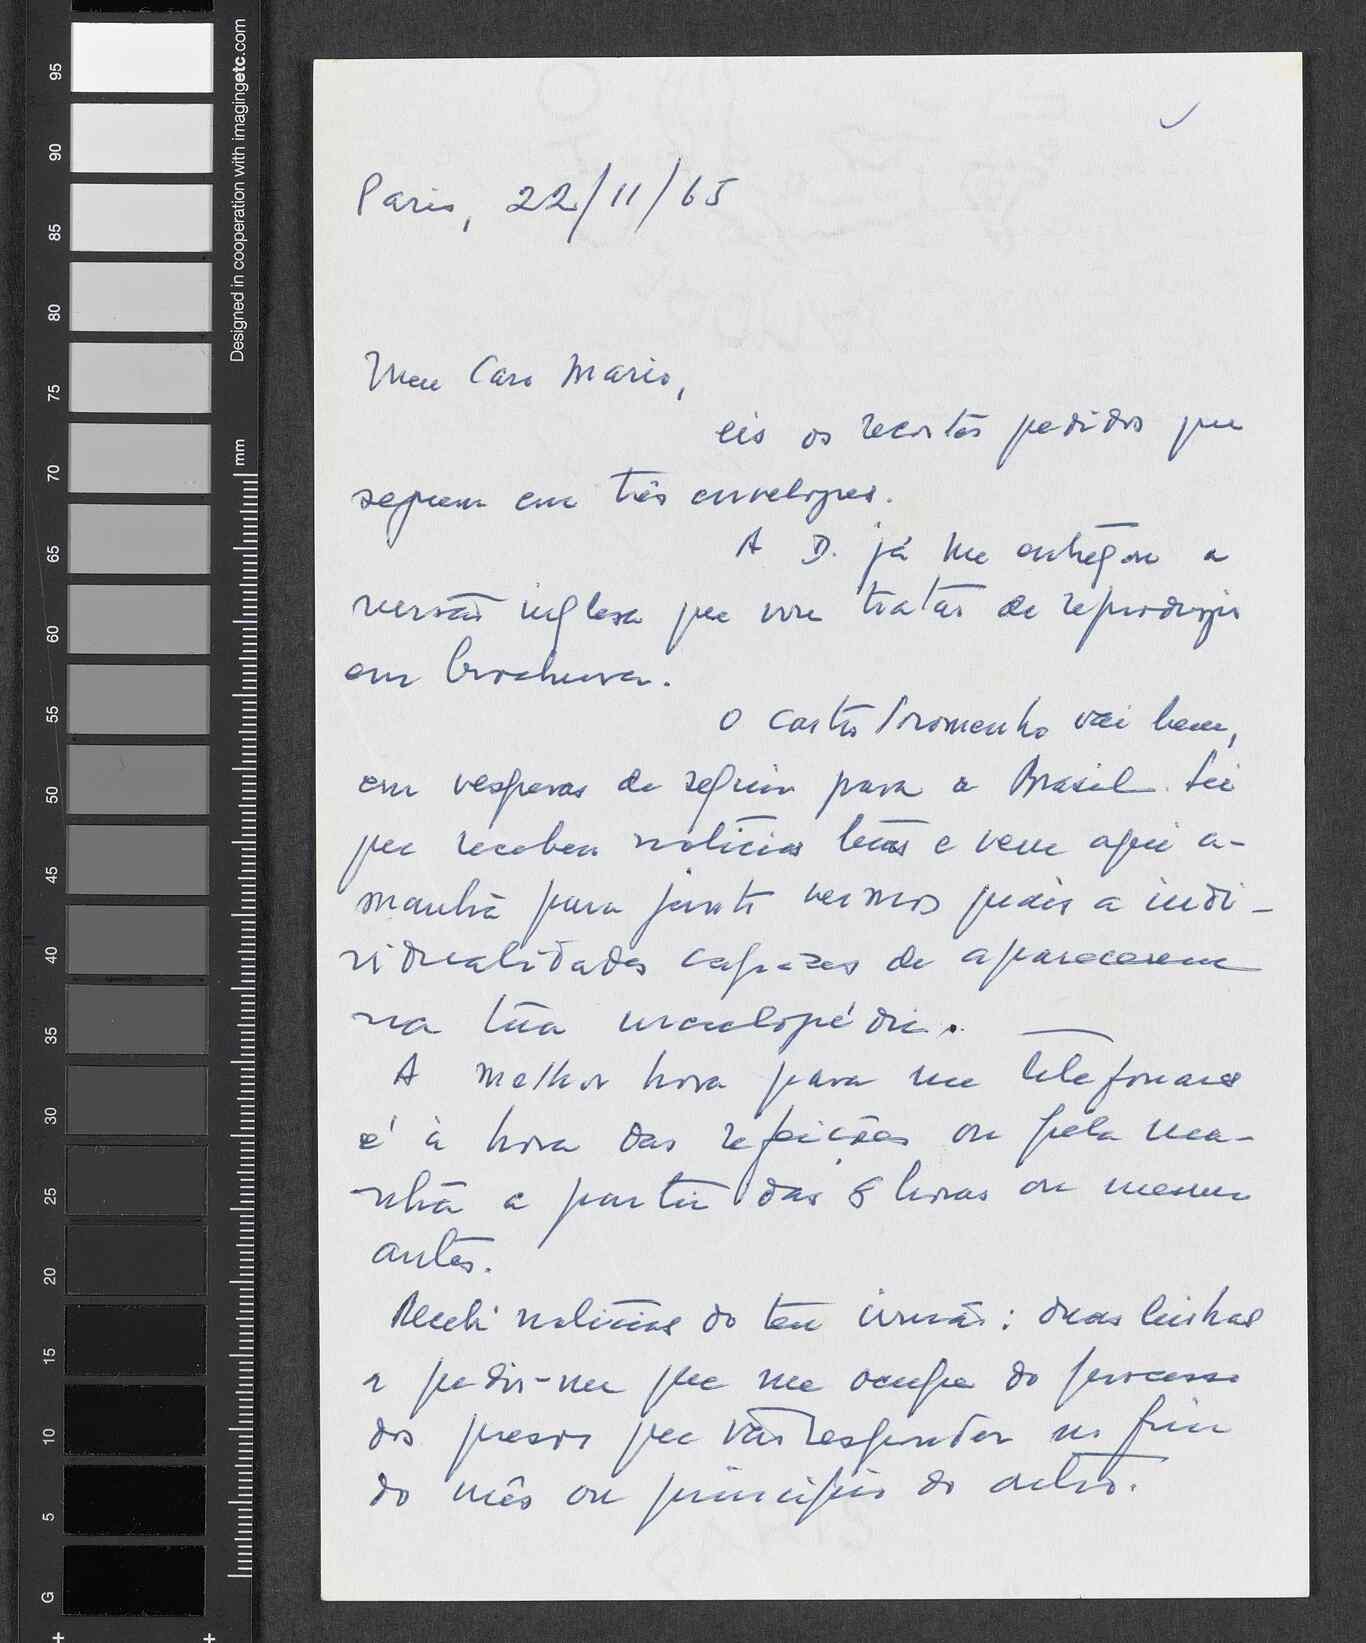 Designed in cooperation with imagingetc.com
mm
95
90
85
80
75
70
65
60
55
50
45
40
35
30
25
20
15
10
5
G
Paris, 22/11/65
Meu Caro Mario,
eis os recortes pedidos que
seguem em três envelopes.
A D. já me entregou a
versão inglesa que vou tratar de reproduzir
em brochura.
O Castro Soromenho vai bem,
em vesperas de seguir para o Brasil. Sei
que recebeu noticias tuas e vem aqui a-
manhã para juntos vermos quais a indi-
vidualidades capazes de aparecerem
na tua enciclopédia.
A melhor hora para me telefonares
é à hora das refeições ou pela ma-
nhã a partir das 8 horas ou mesmo
antes.
Recebi noticias do teu irmão: duas linhas
a pedir-me que me ocupe do processo
dos presos que vão responder no fim
do mês ou principios do outro.